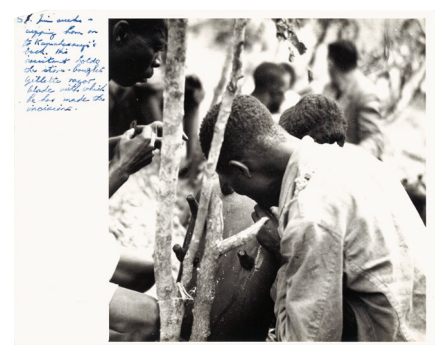 5 8. Jim sucks a
cupping horn on
to Kapendasanyi's
back. His
assistant holds
the store-bought
Gillette razor
blade with which
he has made the
incisions.